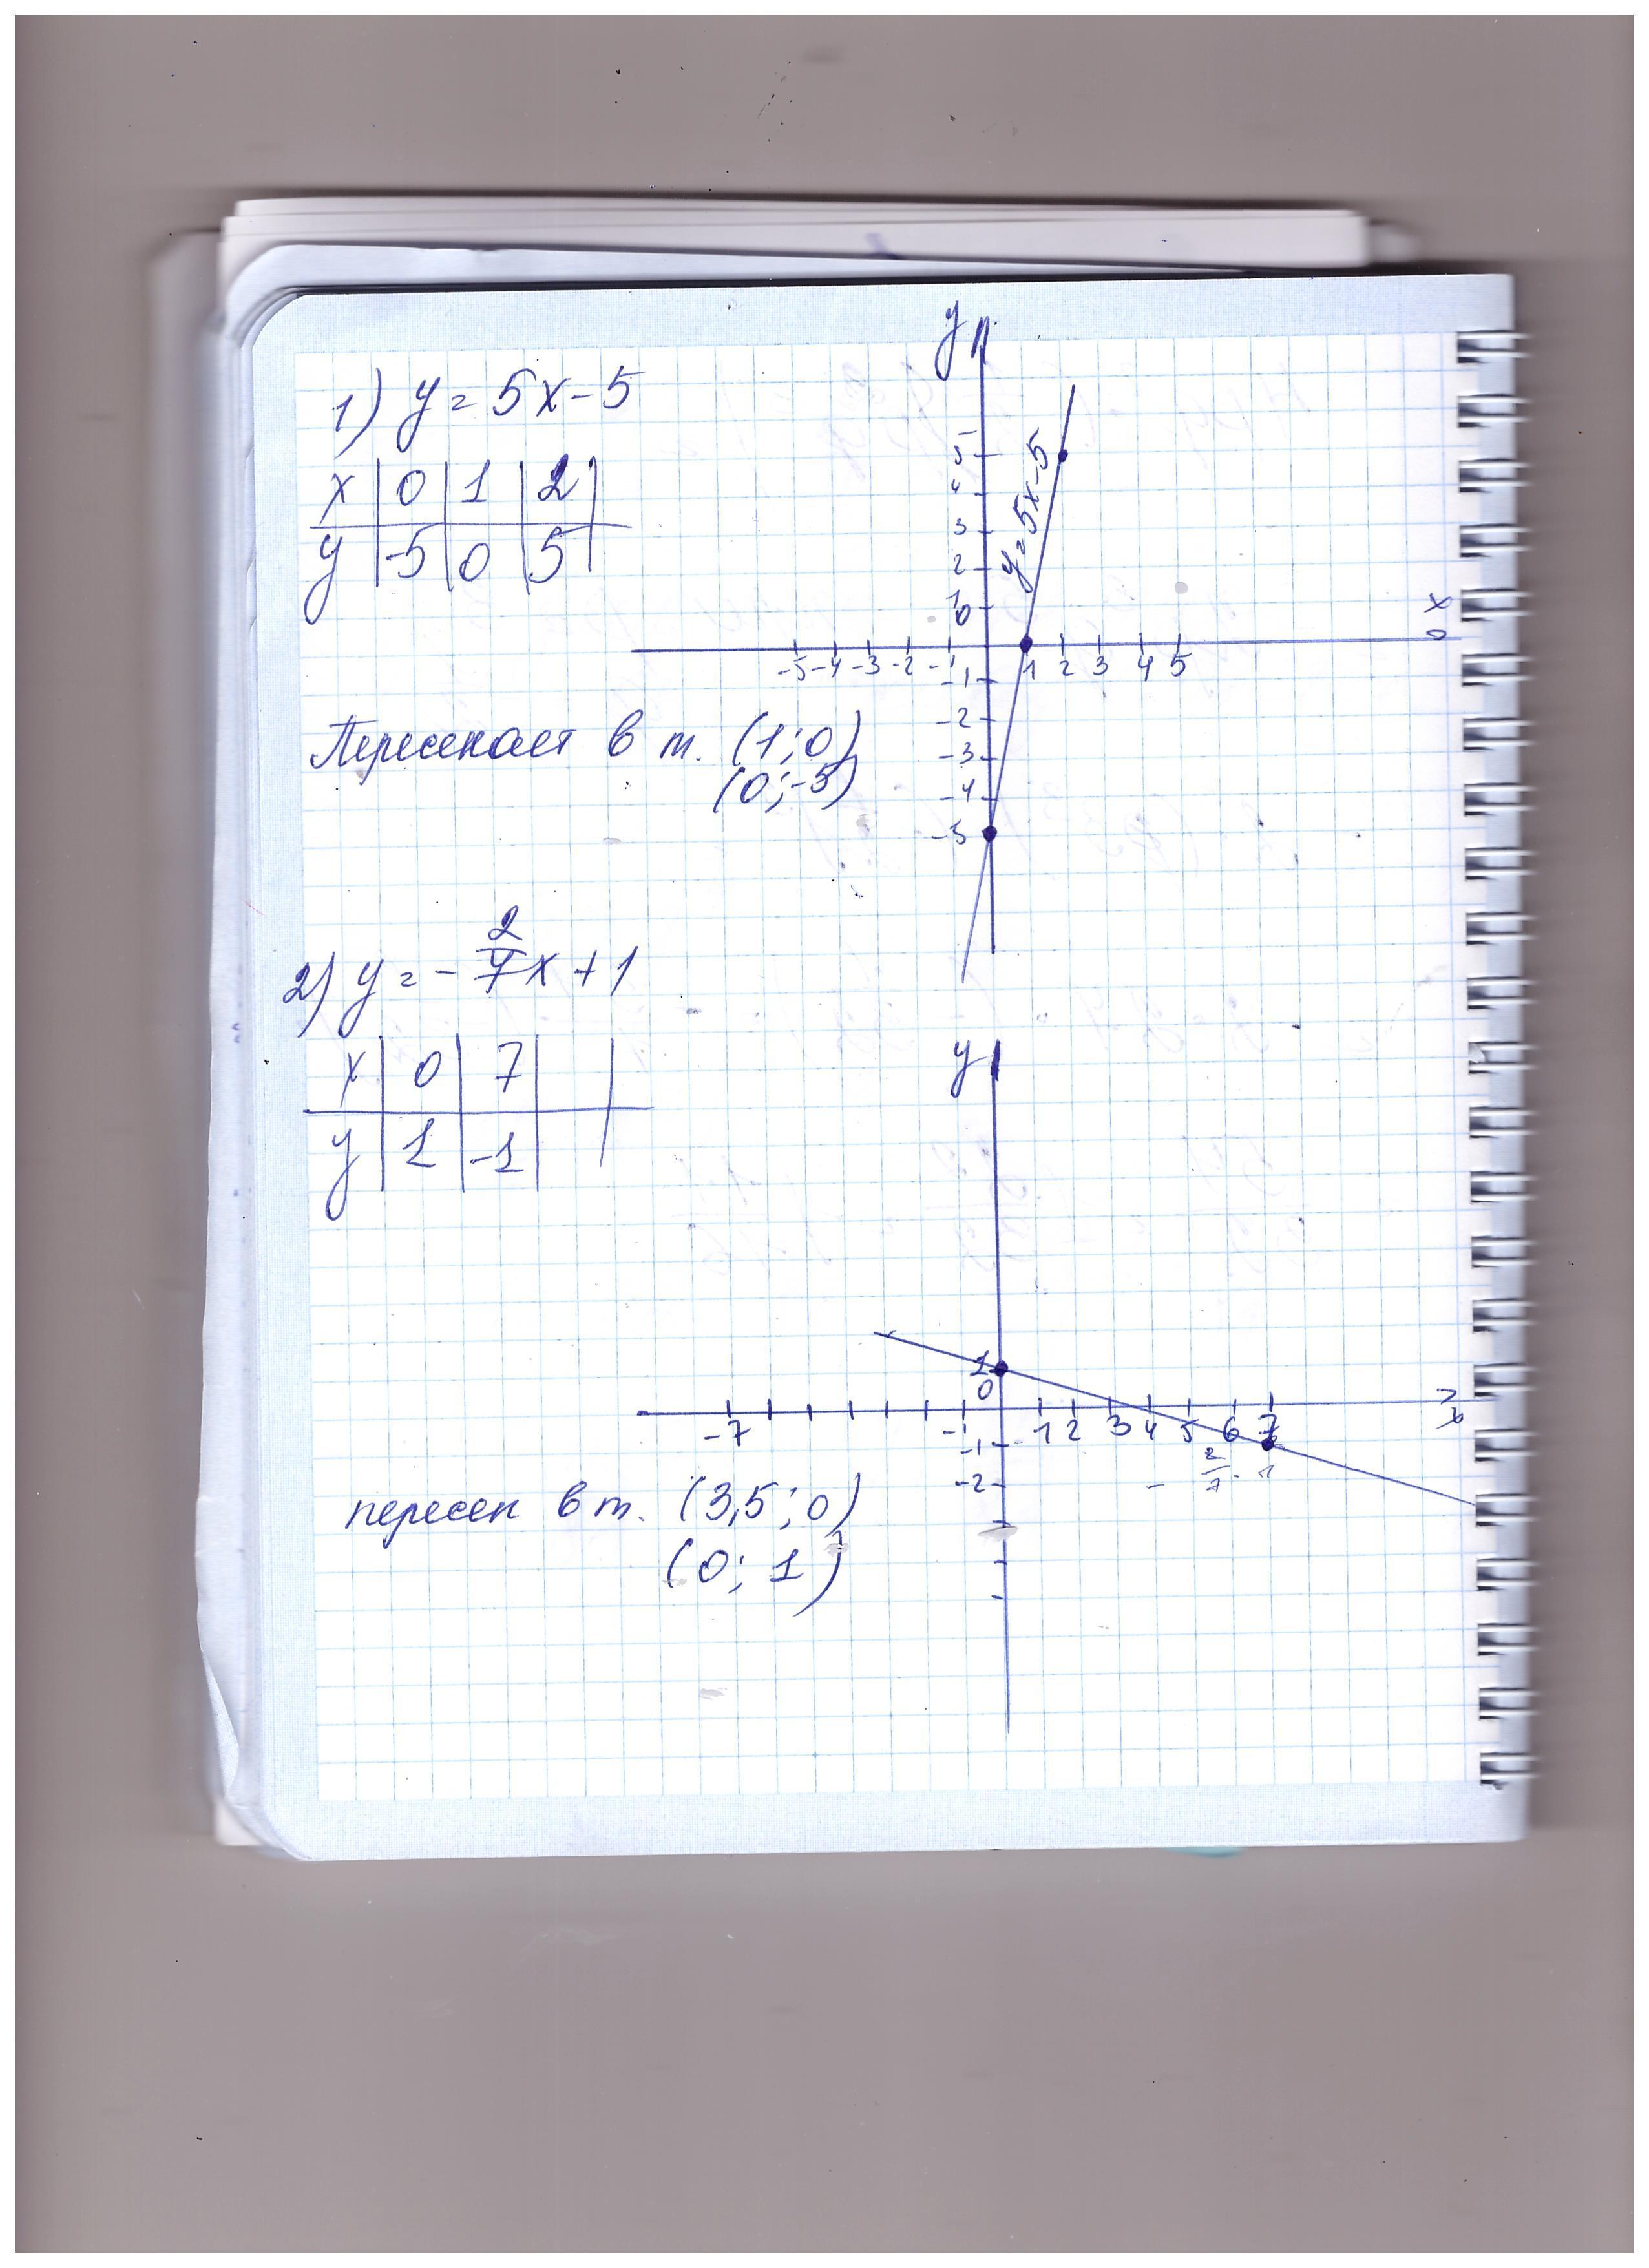 1) y = 5x - 5
x | 0 | 1 | 2 |
y | -5 | 0 | 5 |
Пересекает в т. (1; 0)
(0; -5)
y
5
4
3
2
1
0
y = 5x - 5
x
-5 -4 -3 -2 -1 1 2 3 4 5
-1
-2
-3
-4
-5
2) y = - 2/7 x + 1
x | 0 | 7 |
y | 1 | -1 |
y
1
0
-7 -1 1 2 3 4 5 6 7
x
-1
-2
пересек в т. (3,5; 0)
(0; 1)